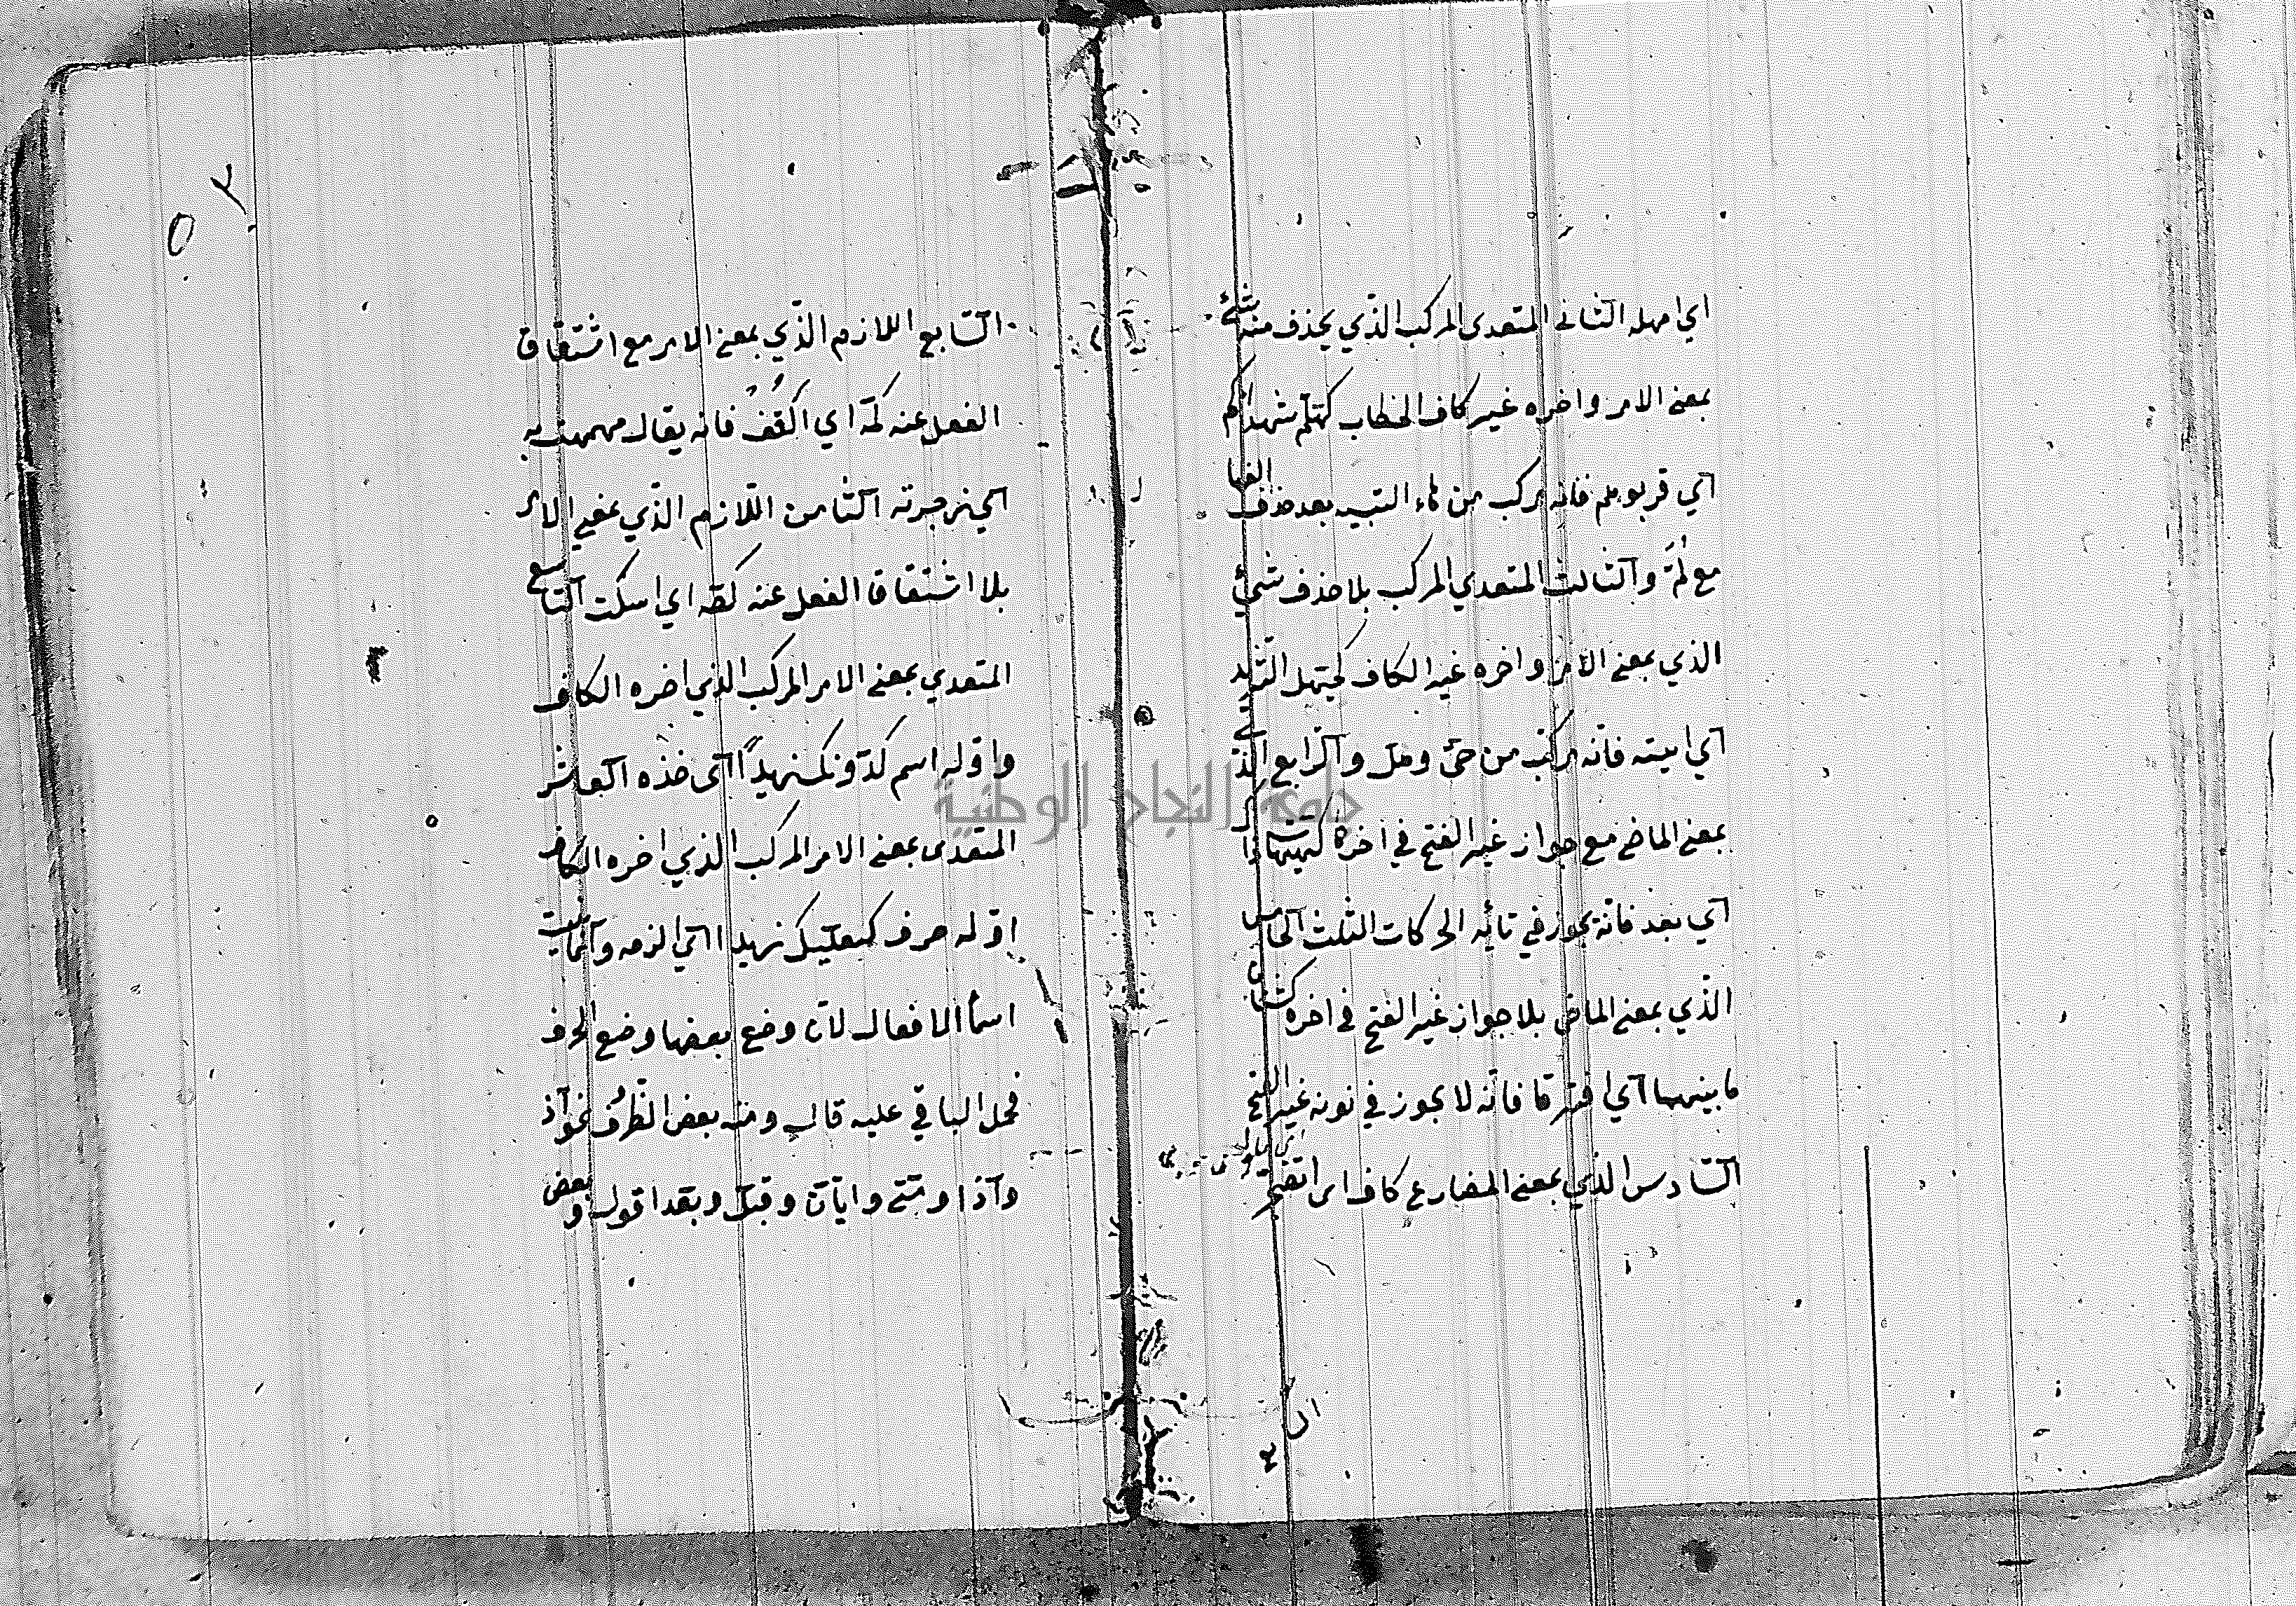 اي امهله الثاني المتعدى المركب الذي يحذف منه شئ
بمعنى الامر واخره غير كاف الخطاب كهلم شهدائكم
اي قربوهم فانه مركب من هاء التنبيه بعد حذف الفها
مع لُمَّ والثالث المتعدي المركب بلا حذف شئ
الذي بمعنى الامر واخره غير الكاف كحيهل الثريد
اي ايته فانه مركب من حى وهل والرابع الذي
بمعنى الماضي مع جواز غير الفتح في اخره كهيهات ذا
اي بعد فانه يجوز في تائه الحركات الثلث الخامس
الذي بمعنى الماضي بلا جواز غير الفتح في اخره كشتان
ما بينهما اي افترقا فانه لا يجوز في نونه غير الفتح
السادس الذي بمعنى المضارع كاف اى اتضجر
السابع اللازم الذي بمعنى الامر مع اشتقاق
الفعل عنه كمه اي اكفف فانه يقال مهمهت به
اي زجرته الثامن اللازم الذي بمعنى الامر
بلا اشتقاق الفعل عنه كصه اي اسكت التاسع
المتعدي بمعنى الامر المركب الذي اخره الكاف
واوله اسم كدونك زيدًا اى خذه العاشر
المتعدى بمعنى الامر المركب الذي اخره الكاف
اوله حرف كعليك زيدا اي الزمه وانما بنيت
اسما الافعال لان وضع بعضها وضع الحرف
فحمل الباقي عليه قال ومنه بعض الظرُف نحو اذ
واذا ومتى وايان وقبل وبعد اقول وبعض
جامعة النجاح الوطنية